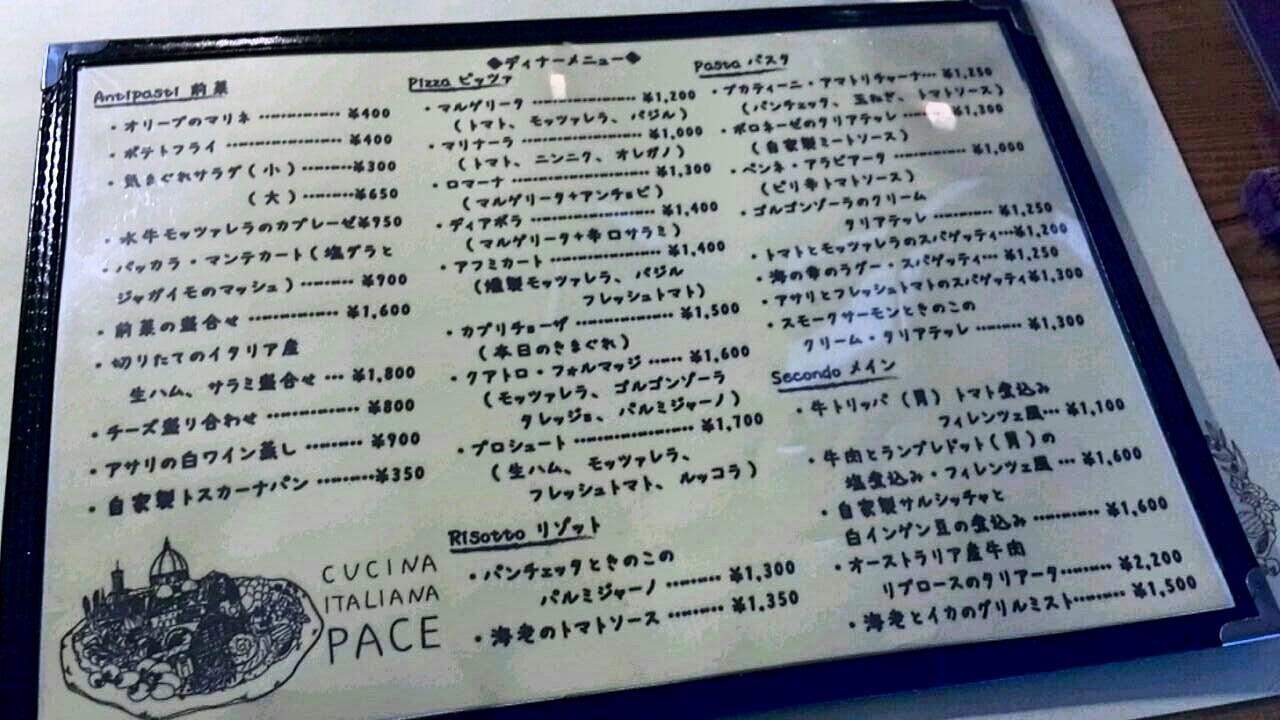 ◆ディナーメニュー◆
Antipasti 前菜
・オリーブのマリネ ............... ¥400
・ポテトフライ ............... ¥400
・気まぐれサラダ(小) ......... ¥300
(大) ......... ¥650
・水牛モッツァレラのカプレーゼ¥950
・バッカラ・マンテカート(塩ダラと
ジャガイモのマッシュ) ......... ¥900
・前菜の盛合せ ............... ¥1,600
・切りたてのイタリア産
生ハム、サラミ盛合せ ... ¥1,800
・チーズ盛り合わせ ............... ¥800
・アサリの白ワイン蒸し ......... ¥900
・自家製トスカーナパン ......... ¥350
CUCINA
ITALIANA
PACE
Pizza ピッツァ
・マルゲリータ .................. ¥1,200
(トマト、モッツァレラ、バジル)
・マリナーラ .................. ¥1,000
(トマト、ニンニク、オレガノ)
・ロマーナ .................. ¥1,300
(マルゲリータ+アンチョビ)
・ディアボラ .................. ¥1,400
(マルゲリータ+辛口サラミ)
・アフミカート .................. ¥1,400
(燻製モッツァレラ、バジル
フレッシュトマト)
・カプリチョーザ .................. ¥1,500
(本日のきまぐれ)
・クアトロ・フォルマッジ ...... ¥1,600
(モッツァレラ、ゴルゴンゾーラ
タレッジョ、パルミジャーノ)
・プロシュート .................. ¥1,700
(生ハム、モッツァレラ、
フレッシュトマト、ルッコラ)
Risotto リゾット
・パンチェッタときのこの
パルミジャーノ ......... ¥1,300
・海老のトマトソース ......... ¥1,350
Pasta パスタ
・ブカティーニ・アマトリチャーナ... ¥1,250
(パンチェッタ、玉ねぎ、トマトソース)
・ボロネーゼのタリアテッレ ......... ¥1,300
(自家製ミートソース)
・ペンネ・アラビアータ ............ ¥1,000
(ピリ辛トマトソース)
・ゴルゴンゾーラのクリーム
タリアテッレ ......... ¥1,250
・トマトとモッツァレラのスパゲッティ...¥1,200
・海の幸のラグー・スパゲッティ... ¥1,250
・アサリとフレッシュトマトのスパゲッティ¥1,300
・スモークサーモンときのこの
クリーム・タリアテッレ ......... ¥1,300
Secondo メイン
・牛トリッパ(胃)トマト煮込み
フィレンツェ風... ¥1,100
・牛肉とランプレドット(胃)の
塩煮込み・フィレンツェ風 ... ¥1,600
・自家製サルシッチャと
白インゲン豆の煮込み ............ ¥1,600
・オーストラリア産牛肉
リブロースのタリアータ......... ¥2,200
・海老とイカのグリルミスト......... ¥1,500